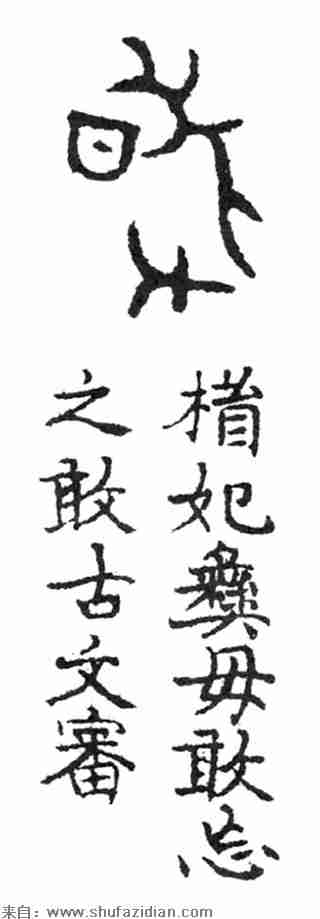 妃彝毋敢忘
之敢古文審
来自：www.shufazidian.com